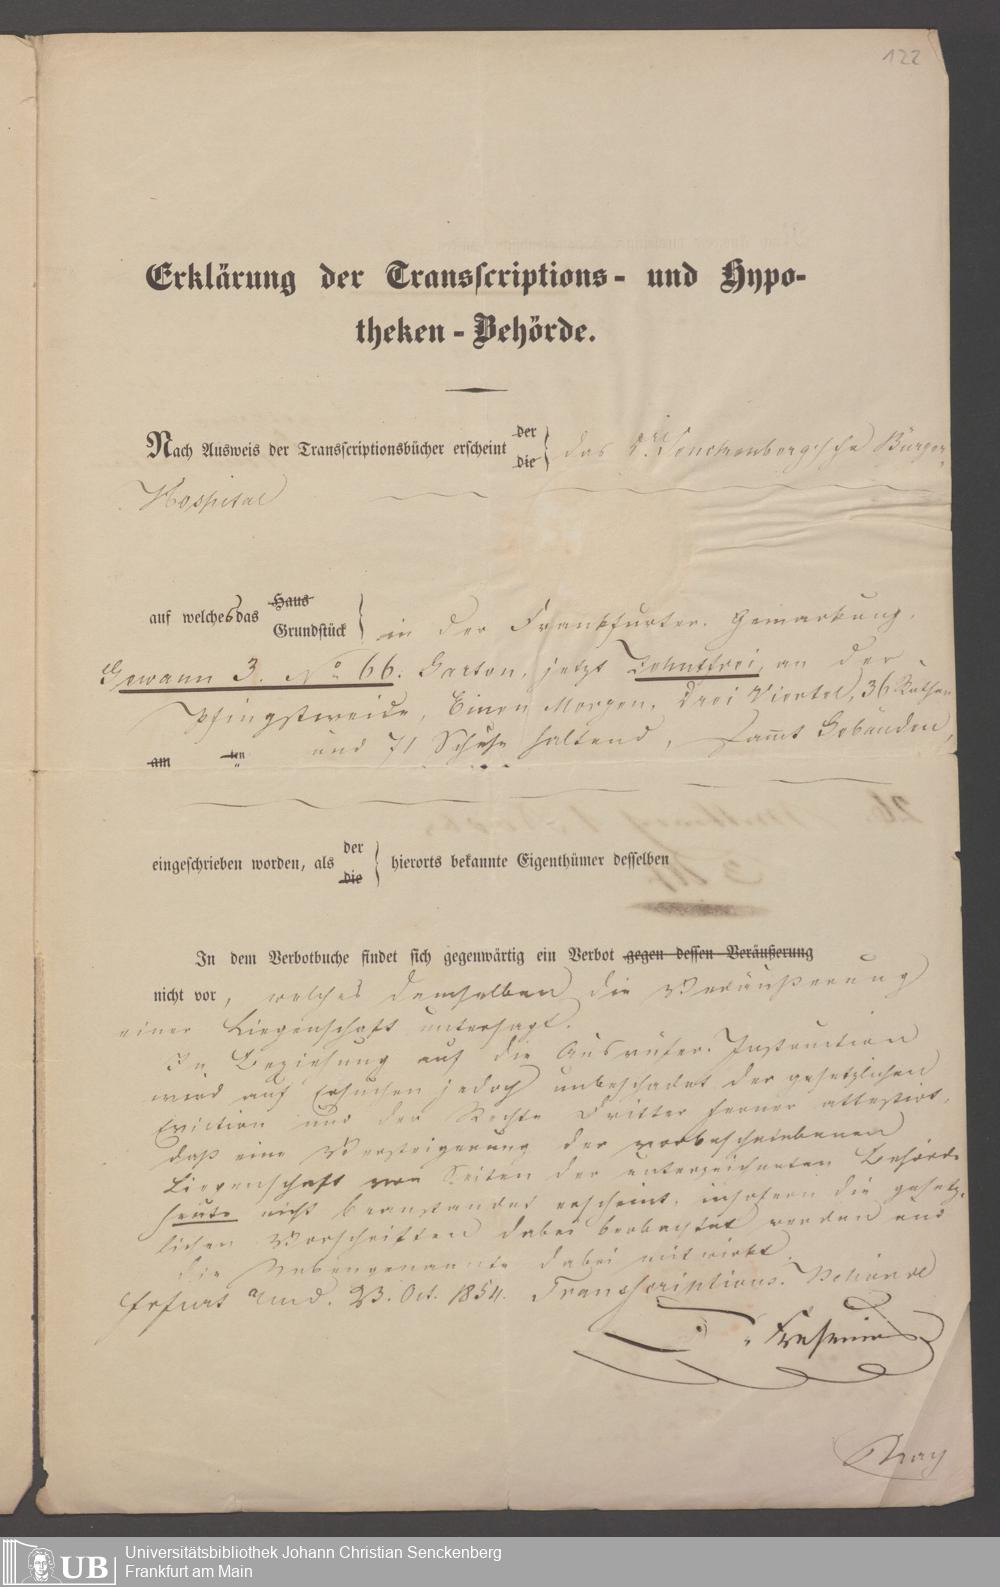 122
Erklärung der Transscriptions- und Hypo-
theken-Behörde.
Nach Ausweis der Transscriptionsbücher erscheint der die das Dr. Senckenbergische Bürger-
Hospital
auf welches das Haus Grundstück in der Frankfurter Gemarkung,
Gewann 3. No 66. Garten, jetzt Zehntfrei, an der
Pfingstweide, Einen Morgen, drei Viertel, 36 Ruthen
am ten und 71 Schuhe haltend, sammt Gebäuden,
eingeschrieben worden, als der die hierorts bekannte Eigenthümer desselben
In dem Verbotbuche findet sich gegenwärtig ein Verbot gegen dessen Veräußerung
nicht vor, welches demselben die Veräußerung
einer Liegenschaft untersagt.
In Beziehung auf die Ausrufer-Instruction
wird auf Ersuchen jedoch unbeschadet der gesetzlichen
Eviction und der Rechte Dritter ferner attestirt,
daß eine Versteigerung der vorbeschriebenen
Liegenschaft von Seiten der unterzeichneten Behörde
heute nicht beanstandet erscheint, insofern die gesetz-
lichen Vorschriften dabei beobachtet werden und
die dabei mitwirkt.
Frfurt a/m d. 23. Oct. 1854. Transscriptions-Behörde
Dr. Fresenius
UB
Universitätsbibliothek Johann Christian Senckenberg
Frankfurt am Main